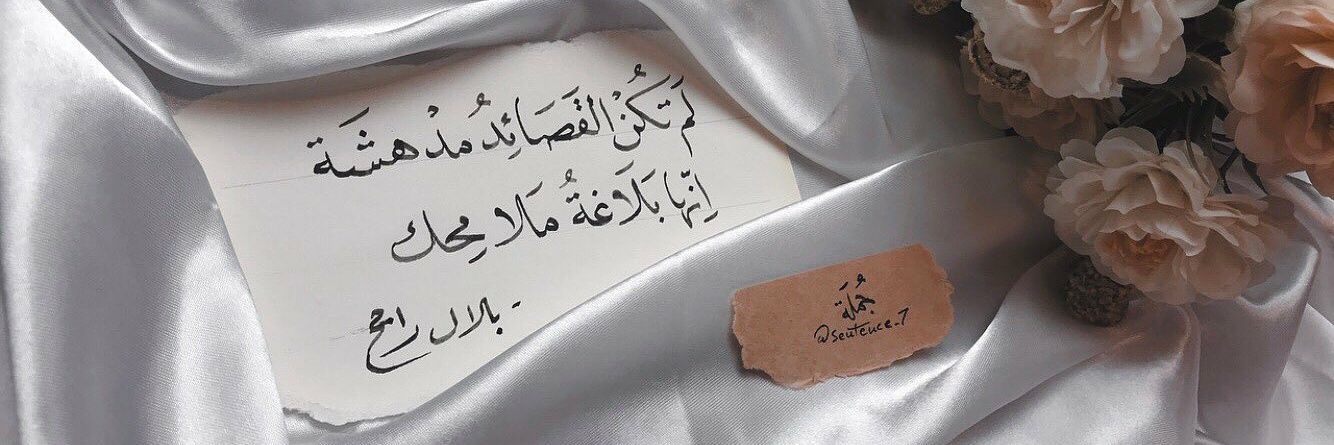 لَم تَكُنْ القَصَائِدُ مُدْهشَة
اِنّها بَلَاغَةُ مَلامِحك
- بلال راجح
جُملَة
@sentence_7